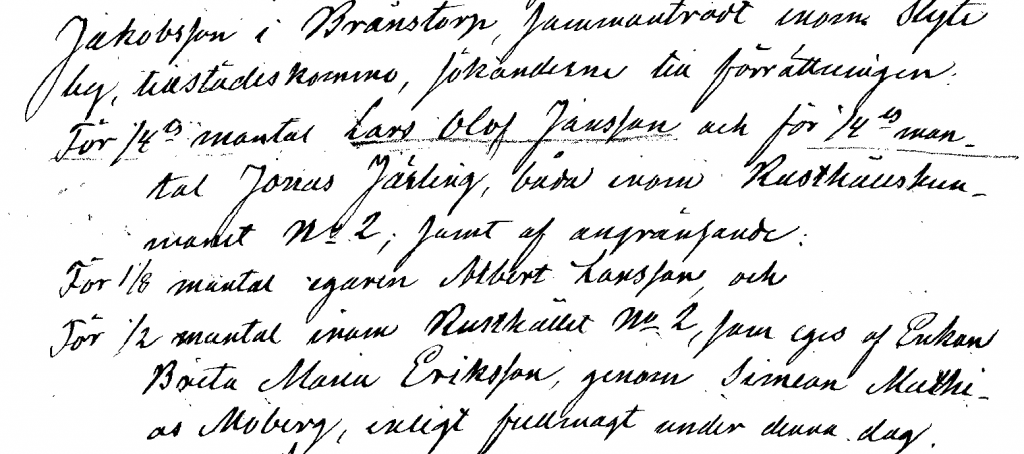 Jakobsson i Brånstorp, sammanträdt inom Ryte
by, tillstädeskommo, sökanderne till förrättningen:
För 1/4 dls mantal Lars Olof Jansson och för 1/4 dls man-
tal Jonas Järling, båda inom Rusthållskun-
manet No 2, samt af angränsande:
För 1/8 mantal egaren Albert Larsson, och
För 1/2 mantal inom Rusthållet No 2, som eges af Enkan
Brita Maria Eriksson, genom Simeon Mathi-
as Moberg, enligt fullmagt under denna dag.